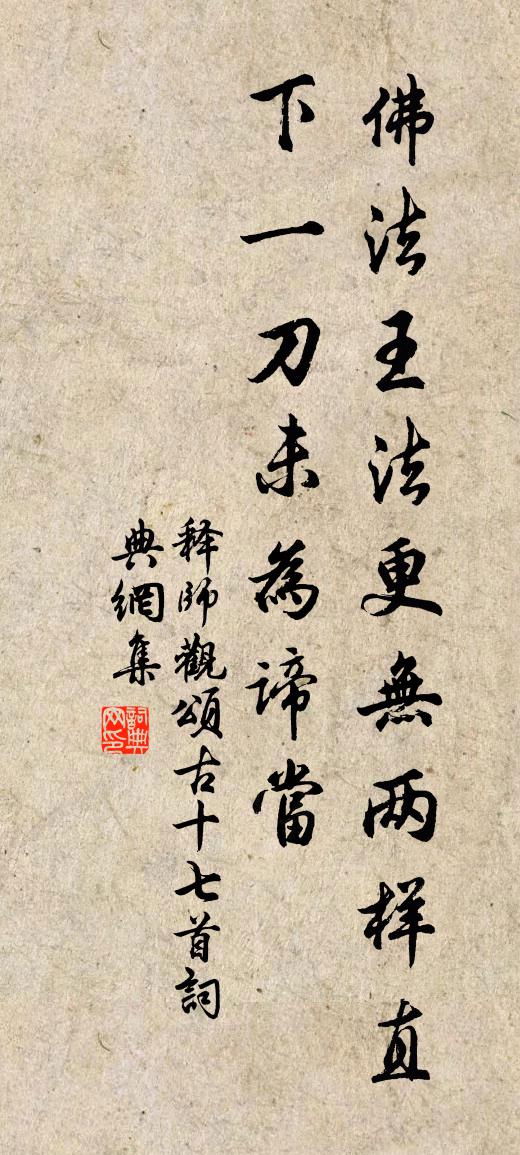 佛法王法更無两样直
下一刀未為諦當
释師觀頌古十七首詞
典網集
詞典网印